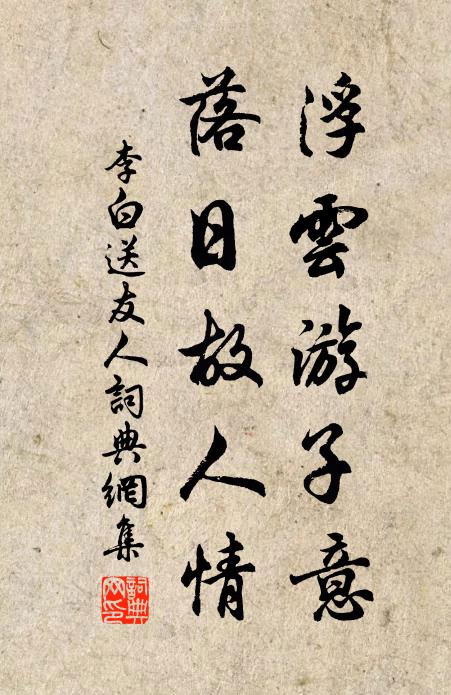 浮雲游子意
落日故人情
李白送友人詞典網集
詞典網印